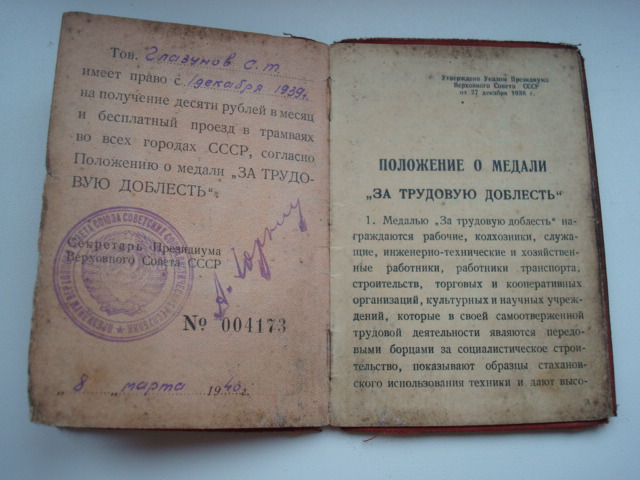 Тов. Глазунов С. т.
имеет право с 1 декабря 1939 г.
на получение десяти рублей в месяц
и бесплатный проезд в трамваях
во всех городах СССР, согласно
Положению о медали „ЗА ТРУДО-
ВУЮ ДОБЛЕСТЬ“.
Секретарь Президиума
Верховного Совета СССР
№ 004173
„ 8 “ марта 1940 г.
Утверждено Указом Президиума
Верховного Совета СССР
от 27 декабря 1938 г.
ПОЛОЖЕНИЕ О МЕДАЛИ
„ЗА ТРУДОВУЮ ДОБЛЕСТЬ“
1. Медалью „За трудовую доблесть“ на-
граждаются рабочие, колхозники, служа-
щие, инженерно-технические и хозяйствен-
ные работники, работники транспорта,
строительств, торговых и кооперативных
организаций, культурных и научных учреж-
дений, которые в своей самоотверженной
трудовой деятельности являются передо-
выми борцами за социалистическое строи-
тельство, показывают образцы стаханов-
ского использования техники и дают высо-